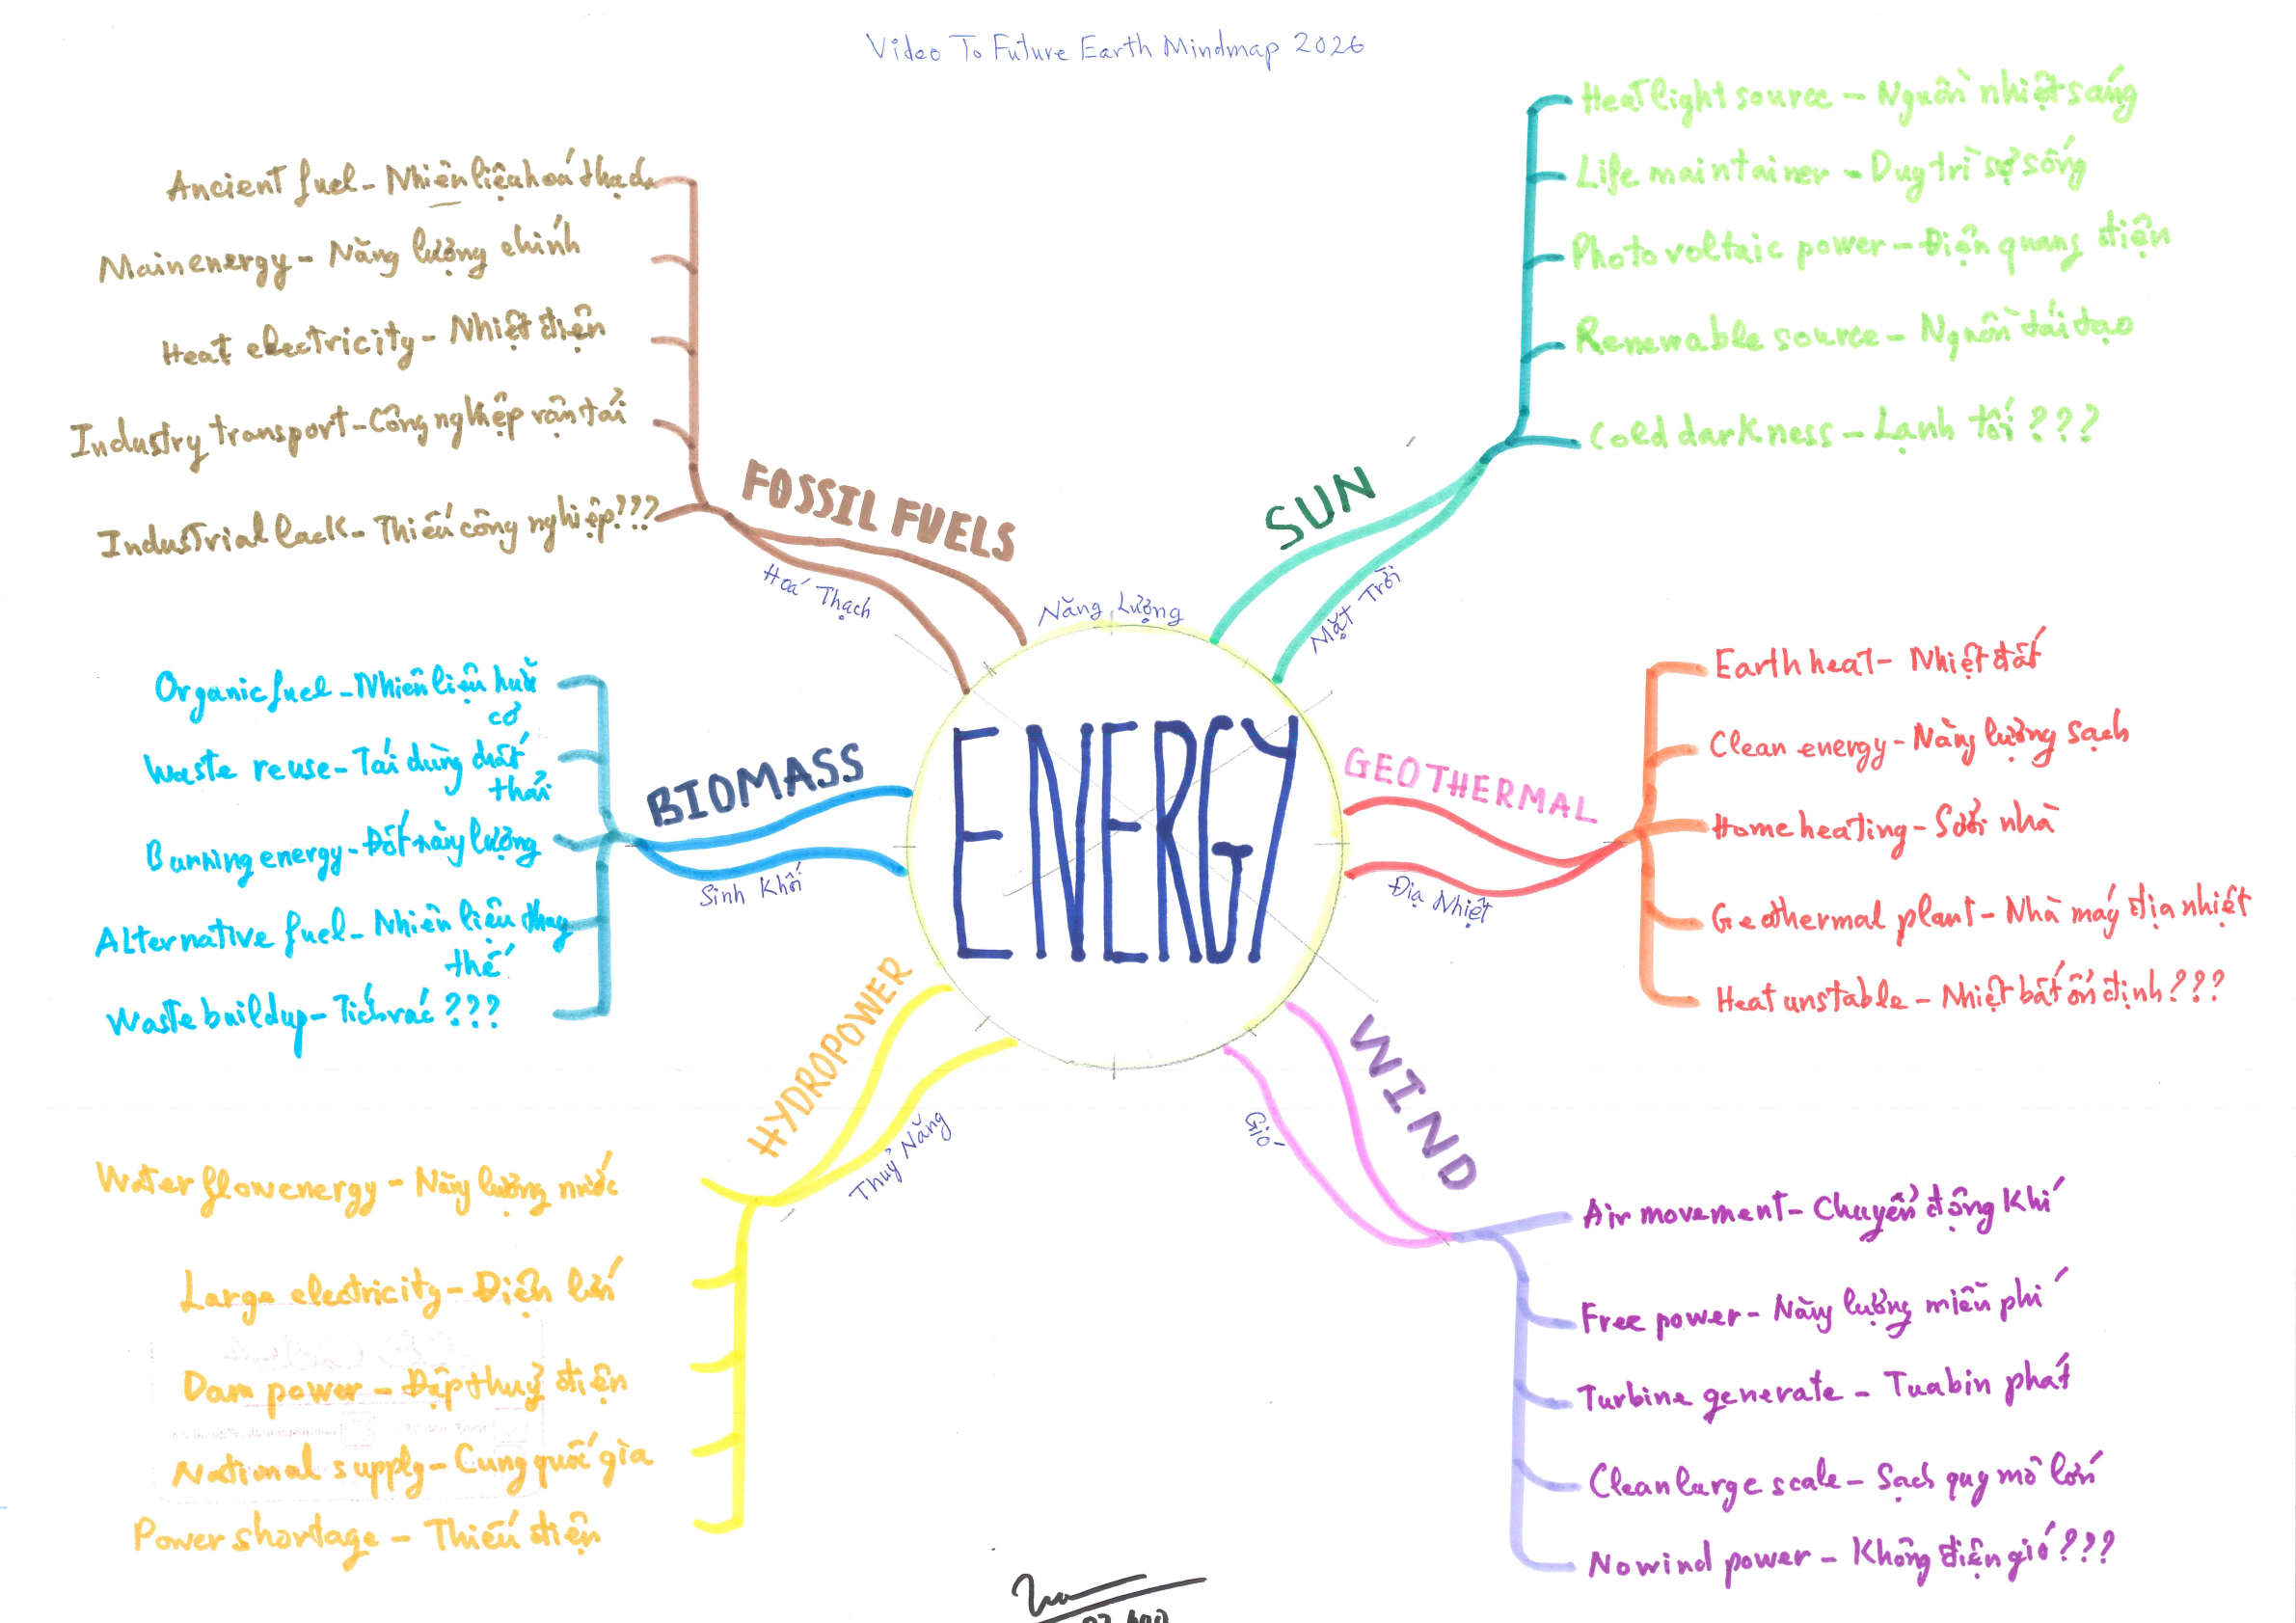 Video To Future Earth Mindmap 2026
ENERGY
Năng Lượng
SUN
Mặt Trời
Heat light source - Nguồn nhiệt sáng
Life maintainer - Duy trì sự sống
Photo voltaic power - Điện quang điện
Renewable source - Nguồn tái tạo
Cold darkness - Lạnh tối ???
GEOTHERMAL
Địa Nhiệt
Earth heat - Nhiệt đất
Clean energy - Năng lượng sạch
Home heating - Sưởi nhà
Geothermal plant - Nhà máy địa nhiệt
Heat unstable - Nhiệt bất ổn định ???
WIND
Gió
Air movement - Chuyển động khí
Free power - Năng lượng miễn phí
Turbine generate - Tuabin phát
Clean large scale - Sạch quy mô lớn
No wind power - Không điện gió ???
HYDROPOWER
Thuỷ Năng
Water flow energy - Năng lượng nước
Large electricity - Điện lớn
Dam power - Đập thuỷ điện
National supply - Cung quốc gia
Power shortage - Thiếu điện
BIOMASS
Sinh Khối
Organic fuel - Nhiên liệu hữu
cơ
Waste reuse - Tái dùng chất
thải
Burning energy - Đốt năng lượng
Alternative fuel - Nhiên liệu thay
thế
Waste buildup - Tích rác ???
FOSSIL FUELS
Hoá Thạch
Ancient fuel - Nhiên liệu hoá thạch
Main energy - Năng lượng chính
Heat electricity - Nhiệt điện
Industry transport - Công nghiệp vận tải
Industrial lack - Thiếu công nghiệp ???